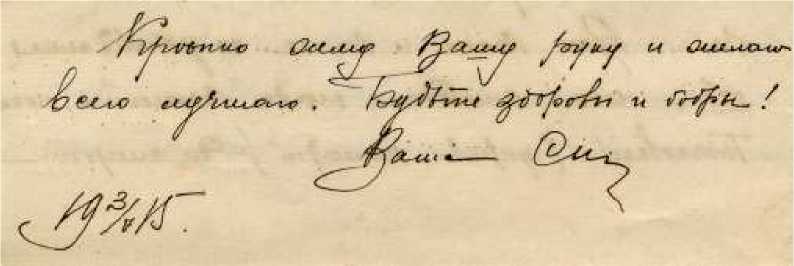 Крѣпко жму Вашу руку и желаю
всего лучшаго. Будьте здоровы и бодры!
Ваша
19 3/V 15.